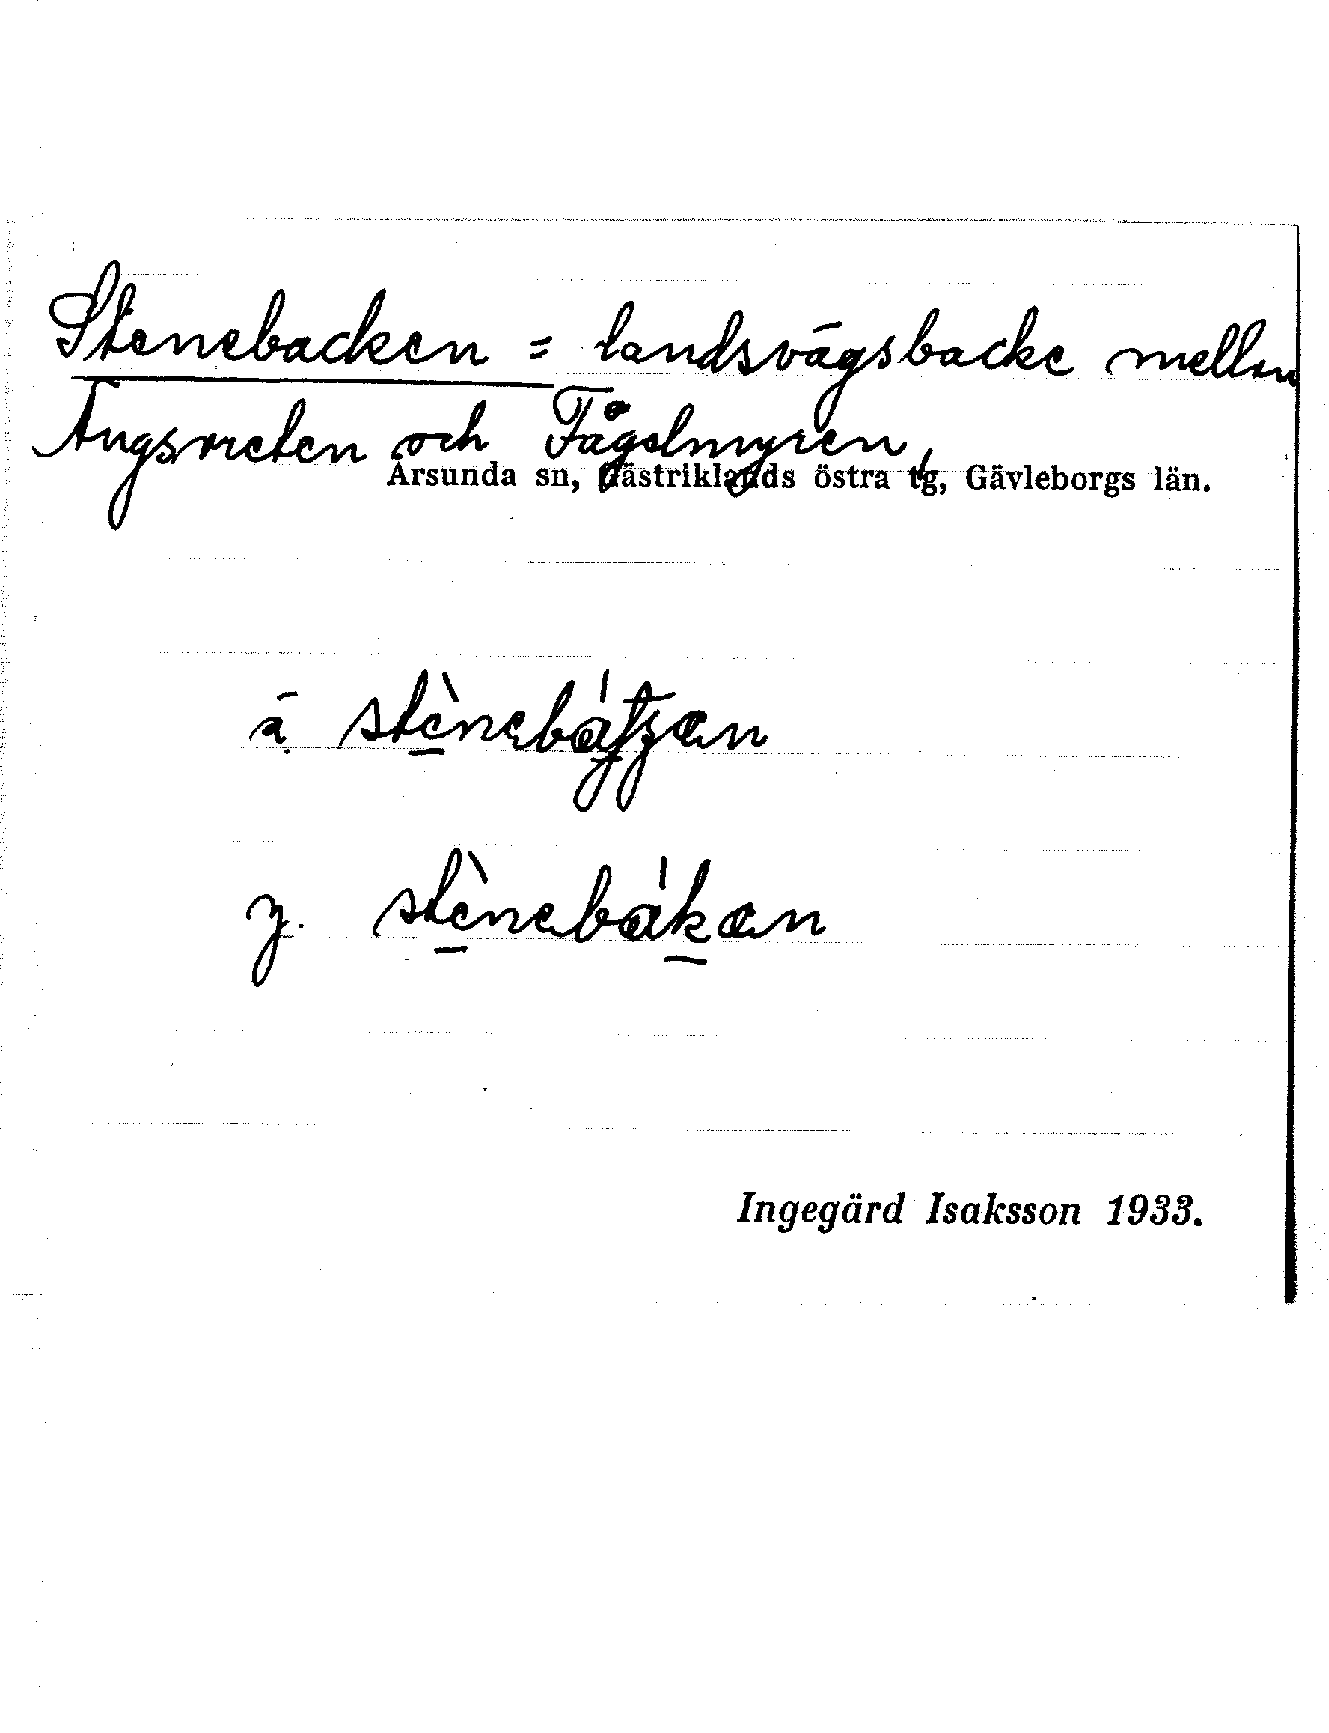 Stenebacken = landsvägsbacke mellan
Ängsreten och Fågelmyren,
Årsunda sn, Gästriklands östra tg, Gävleborgs län.
ä. stènebátʒan
y. stènebákan
Ingegärd Isaksson 1933.